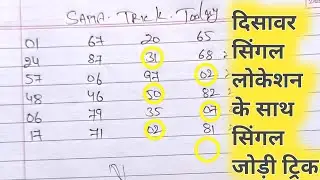 SAMA. Trick. Today
01 67 20 65
24 87 31 68
57 06 97 02
48 46 50 82
06 79 35 07
17 71 02 81
दिसावर
सिंगल
लोकेशन
के साथ
सिंगल
जोड़ी ट्रिक